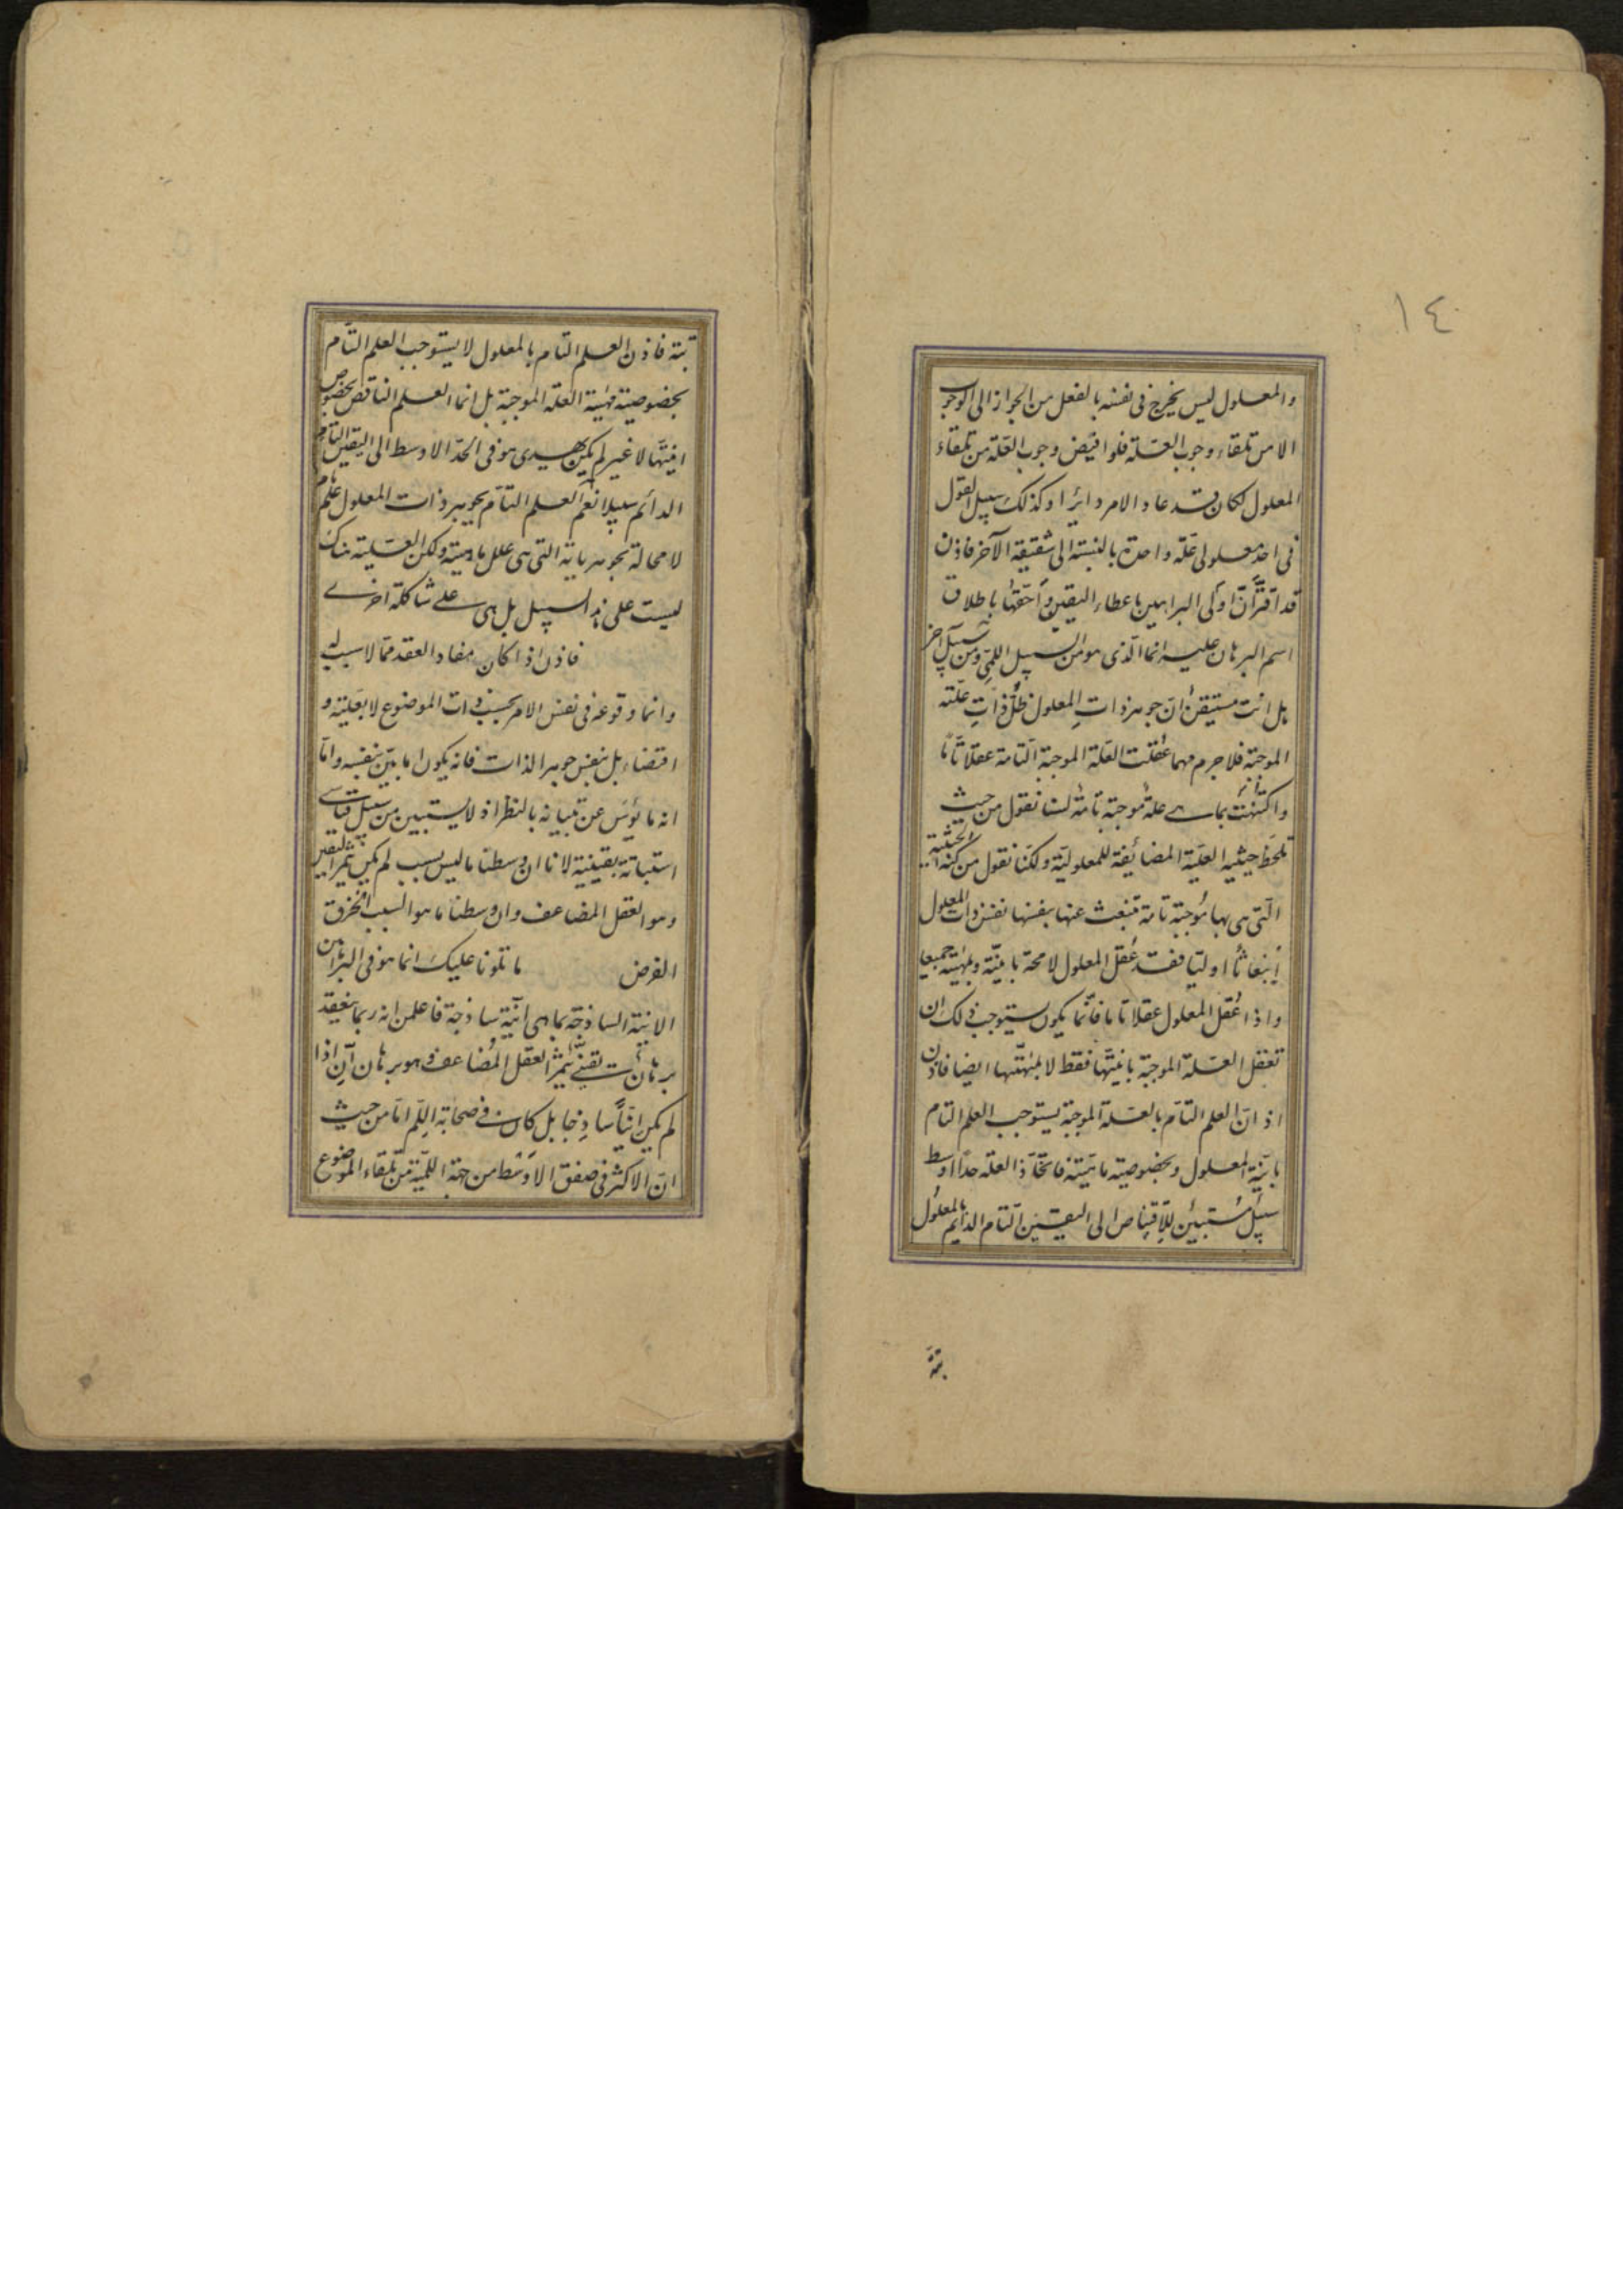 ١٤
والمعلول ليس يخرج فى نفسه بالفعل من الجواز الى الوجوب
الا من تلقاء وجوب العلة فلو افيض وجوب العلة من تلقاء
المعلول لكان قد عاد الامر دايرا وكذلك سبيل القول
فى احد معلولى علة واحدة بالنسبة الى شقيقه الآخر فاذن
قد اقترّ انّ اولى البراهين باعطاء اليقين وأحقّها باطلاق
اسم البرهان عليه انما الذى هو من السبيل اللمّى ومن سبيل آخر
بل انت مستيقن انّ جوهر ذات المعلول ظلّ ذات علّته
الموجبة فلا جرم مهما عُقلت العلة الموجبة التامة عقلا تامّا
واكتُنهت بما هى علة موجبة تامة لسنا نقول من حيث
تلحظ حيثية العلّية المضائفة للمعلولية ولكنا نقول من كنه الحيثية
الّتى هى بها مُوجبة تامة تنبعث عنها بنفسها نفس ذات المعلول
إنبعاثا اوليا فقد عُقل المعلول لا محة بانيّته وبمهيته جميعا
واذا عُقل المعلول عقلا تاما فانّما يكون يستوجب ذلك ان
تعقل العلة الموجبة بانيّتها فقط لا بمهيّتها ايضا فاذن
اذ انّ العلم التامّ بالعلة الموجبة يستوجب العلم التام
بانيّة المعلول وبخصوصية ماهيته فاتخاذ العلة حدّا اوسط
سبيل مستبين للاقتناص الى اليقين التام الدايم بالمعلول
بتة
بتة فاذن العلم التام بالمعلول لا يستوجب العلم التام
بخصوصية مهية العلة الموجبة بل انما العلم الناقص بخصوص
انيّتها لا غير لم يكن يهدى هو فى الحدّ الاوسط الى اليقين التام
الدائم سبيلا نعم العلم التام بجوهر ذات المعلول علم تام
لا محالة بجوهرياته التى هى علل ماهيته ولكن العلية هناك
ليست على هذا السبيل بل هى على شاكلة اخرى
فاذن اذا كان مفاد العقد مما لا سبب له
وانما وقوعه فى نفس الامر بحسب ذات الموضوع لا بعلية و
اقتضاء بل بنفس جوهر الذات فانه يكون اما بيّن بنفسه واما
انه مأيوس عن تبيانه بالنظر اذ لا يستبين من سبيل قياسى
استبانة يقينية لانا ان وسطنا ما ليس بسبب لم يكن يثمر اليقين
وهو العقل المضاعف وان وسطنا ما هو السبب انخرق
الفرض ما تلونا عليك انما هو فى البراهين
الانية الساذجة بما هى انّية ساذجة فاعلمن انه ربما ينعقد
برهان انّ يقينىّ يثمر العقل المُضاعف وهو برهان انّ اذا
لم يكن انّيّاً ساذجا بل كان فى صحابة اللّم امّا من حيث
انّ الاكثر فى صفق الأوسط من جهة اللمّية من تلقاء الموضوع